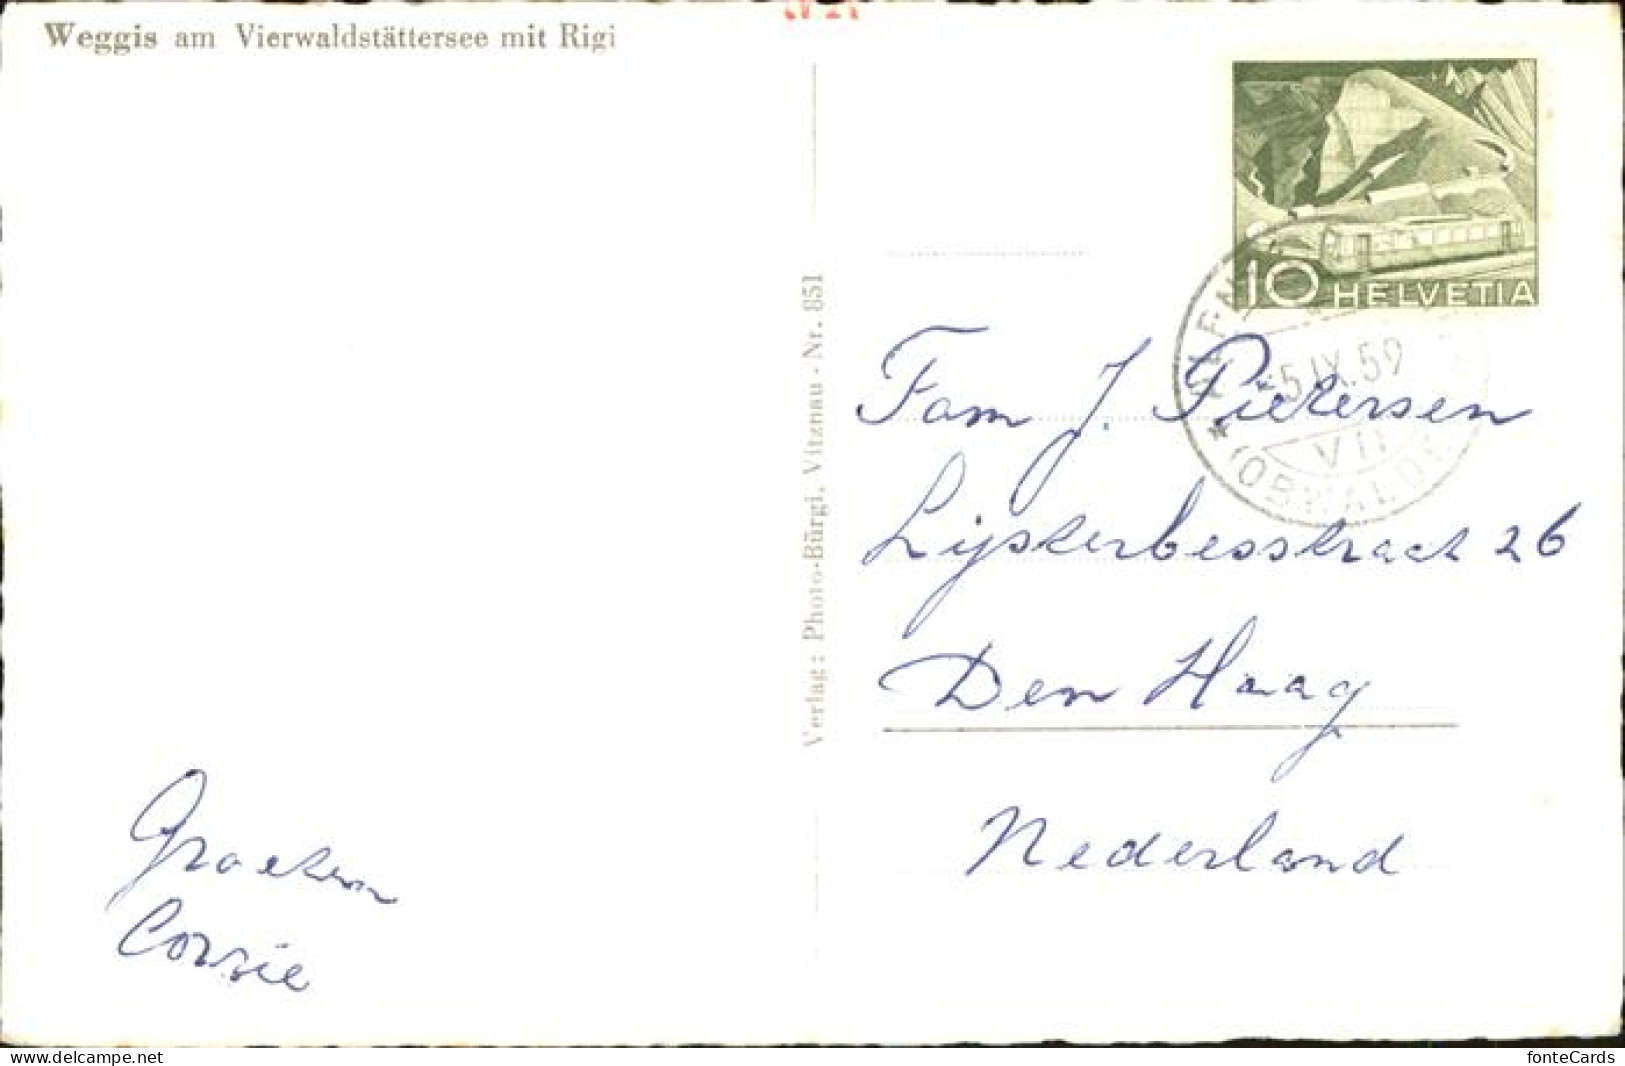 Weggis am Vierwaldstättersee mit Rigi
10 HELVETIA
5.IX.59
VII
(OBWALDEN
Verlag: Photo-Bürgi, Vitznau - Nr. 851
Fam J. Pietersen
Lijsterbesstraat 26
Den Haag
Nederland
Groeten
Corrie
delcampe.net
fonteCards